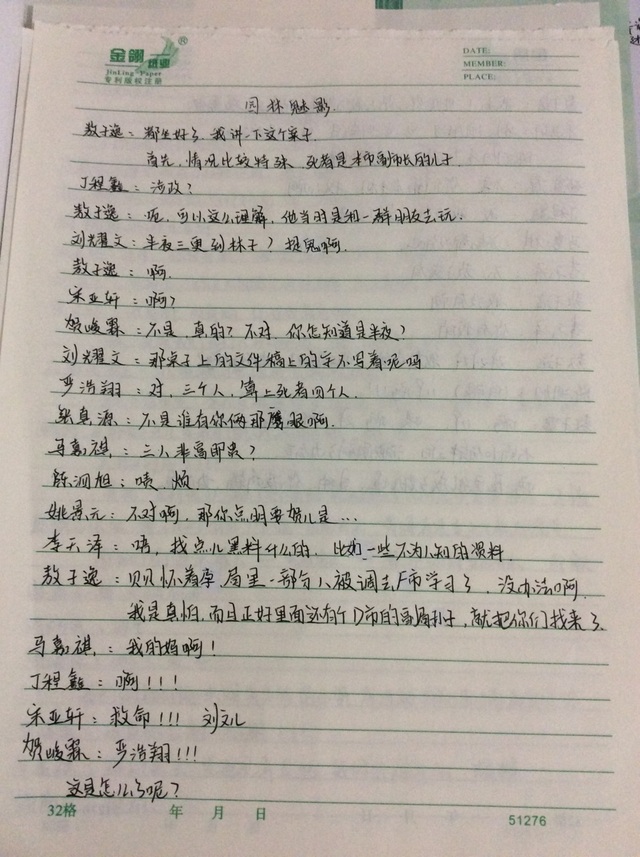 金翎
纸业
®
JinLing Paper
专利版权注册
DATE:
MEMBER:
PLACE:
园林魅影
敖子逸：都坐好了，我讲一下这个案子.
首先，情况比较特殊，死者是本市副市长的儿子
丁程鑫：涉政？
敖子逸：呃，可以这么理解，他当时是和一群朋友去玩.
刘耀文：半夜三更到林子？捉鬼啊.
敖子逸：啊.
宋亚轩：啊？
贺峻霖：不是，真的？不对，你怎知道是半夜？
刘耀文：那桌子上的文件稿上的字不写着呢吗
严浩翔：对，三个人，算上死者四个人.
张真源：不是谁有你俩那鹰眼啊.
马嘉祺：三人非富即贵？
陈泗旭：啧，烦.
姚景元：不对啊，那你点明要贺儿是…
李天泽：唔，找点儿黑料什么的，比如一些不为人知的资料
敖子逸：贝贝怀着孕，局里一部分人被调去F市学习了，没办法啊.
我是真怕，而且正好里面还有个D市的副局利子，就把你们找来了.
马嘉祺：我的妈啊！
丁程鑫：啊！！！
宋亚轩：救命！！！ 刘文儿
贺峻霖：严浩翔！！！
这是怎么了呢？
32格 年 月 日 51276